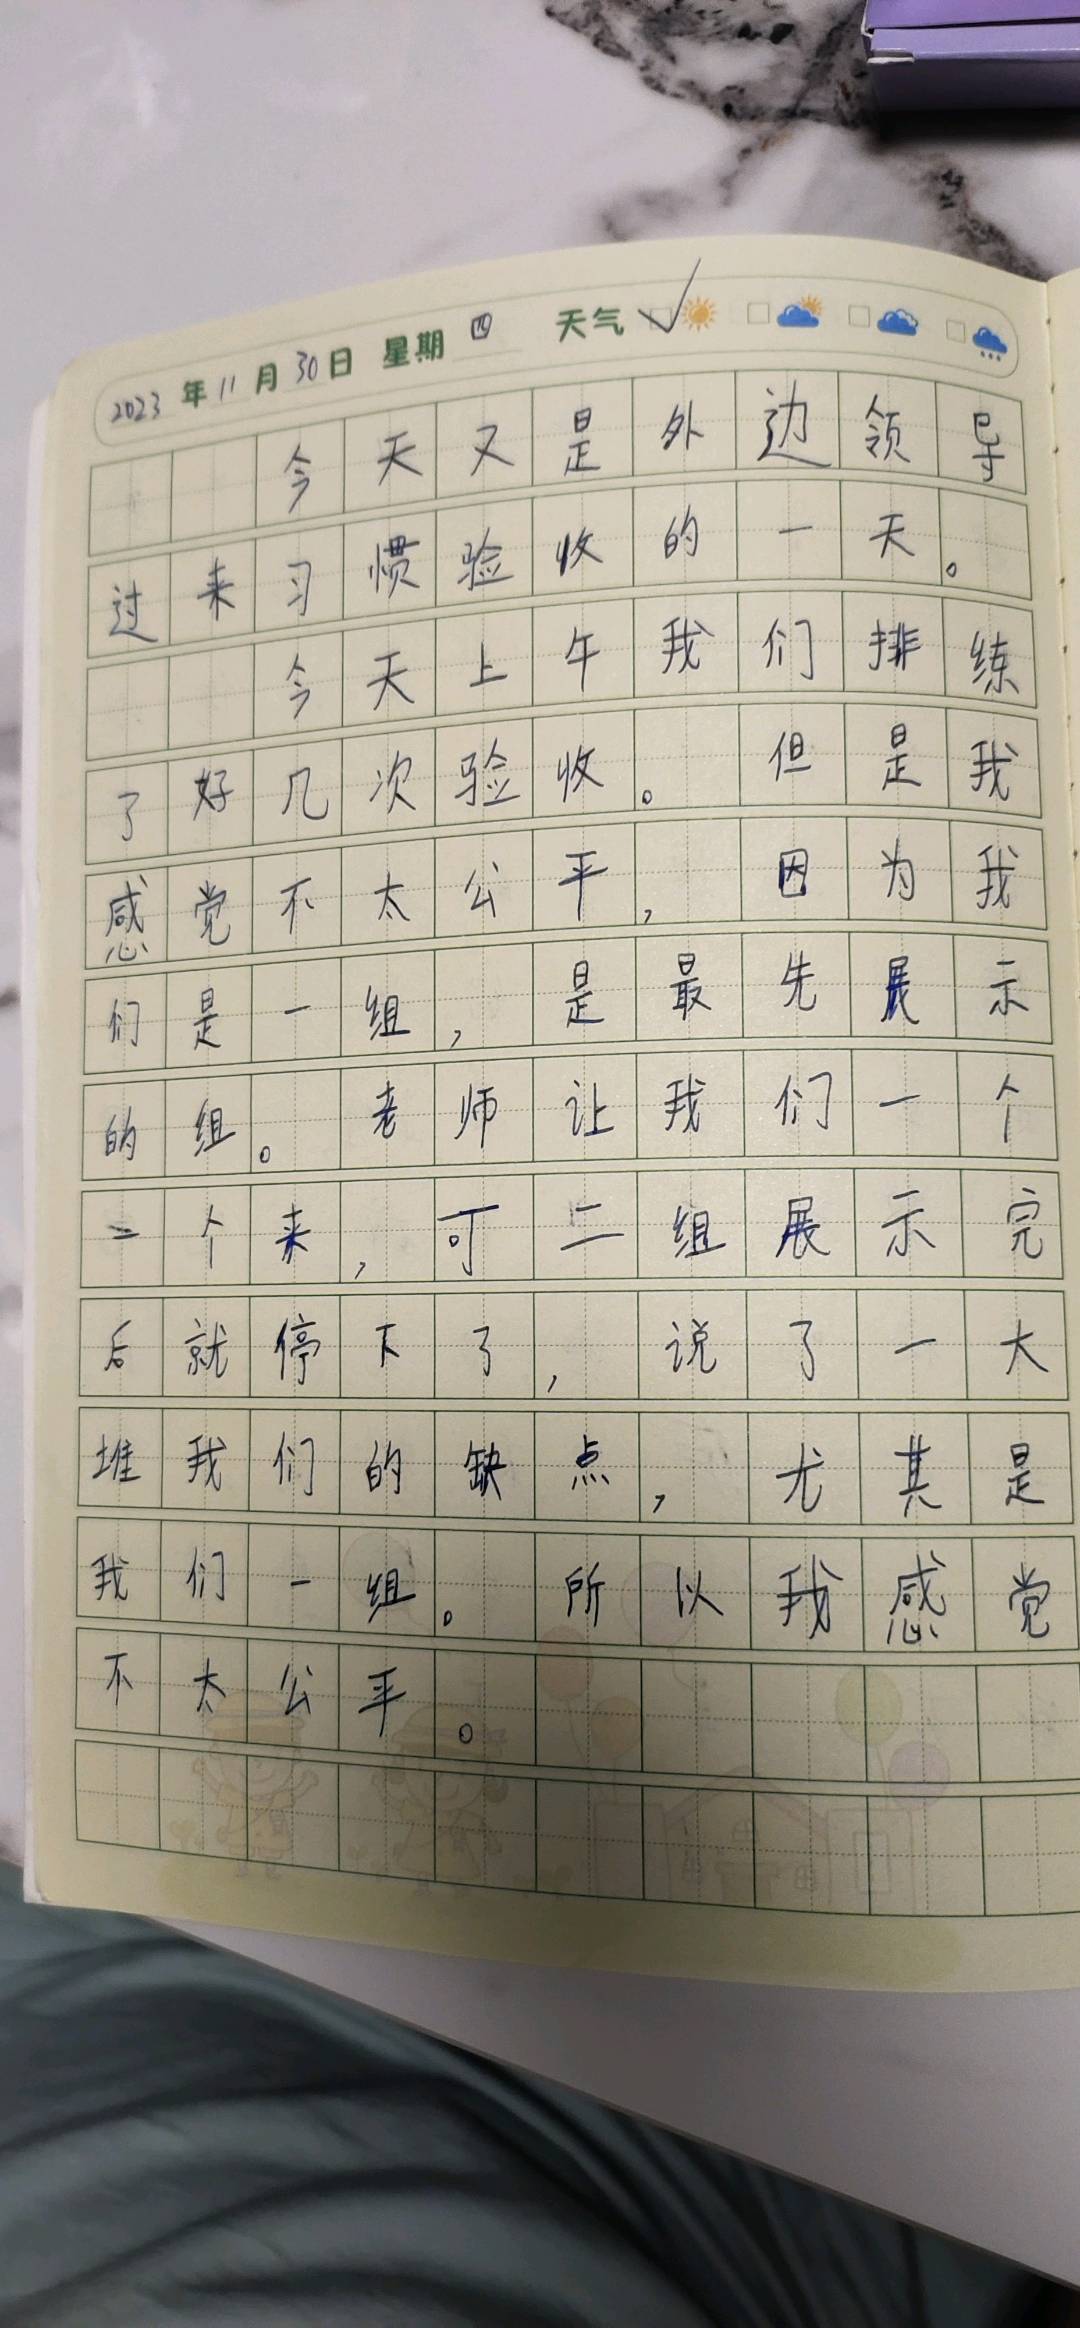 2023 年 11 月 30 日 星期 四 天气
今天又是外边领导
过来习惯验收的一天。
今天上午我们排练
了好几次验收。但是我
感觉不太公平,因为我
们是一组,是最先展示
的组。老师让我们一个
一个来,可二组展示完
后就停下了,说了一大
堆我们的缺点,尤其是
我们一组。所以我感觉
不太公平。